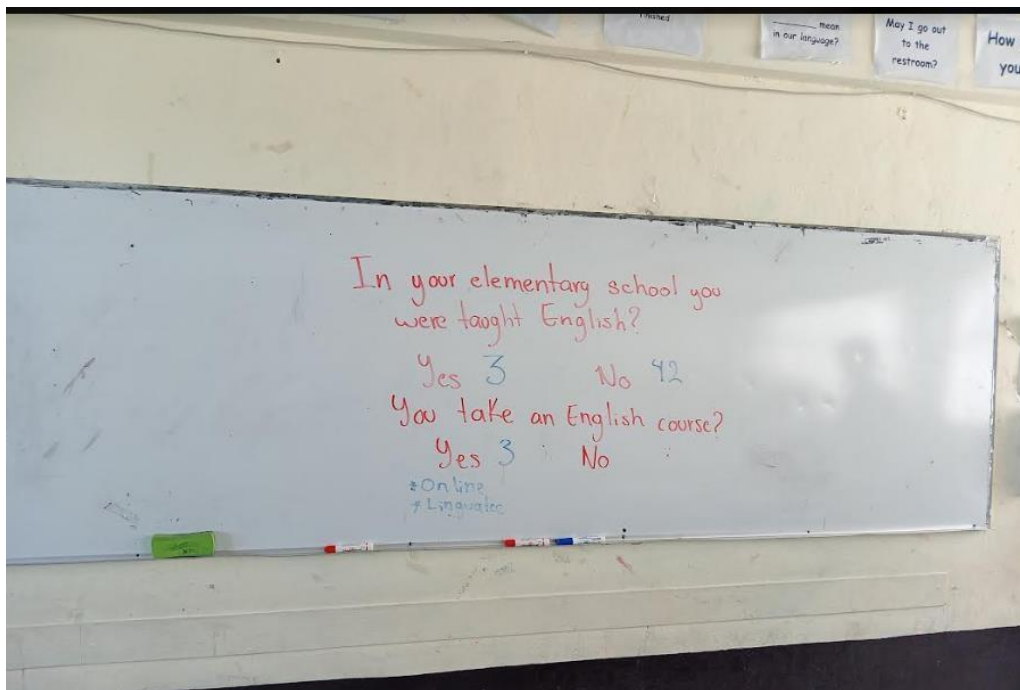 finished
mean
in our language?
May I go out
to the
restroom?
How
you
In your elementary school you
were taught English?
Yes 3 No 42
You take an English course?
Yes 3 No
*Online
*Linguatec